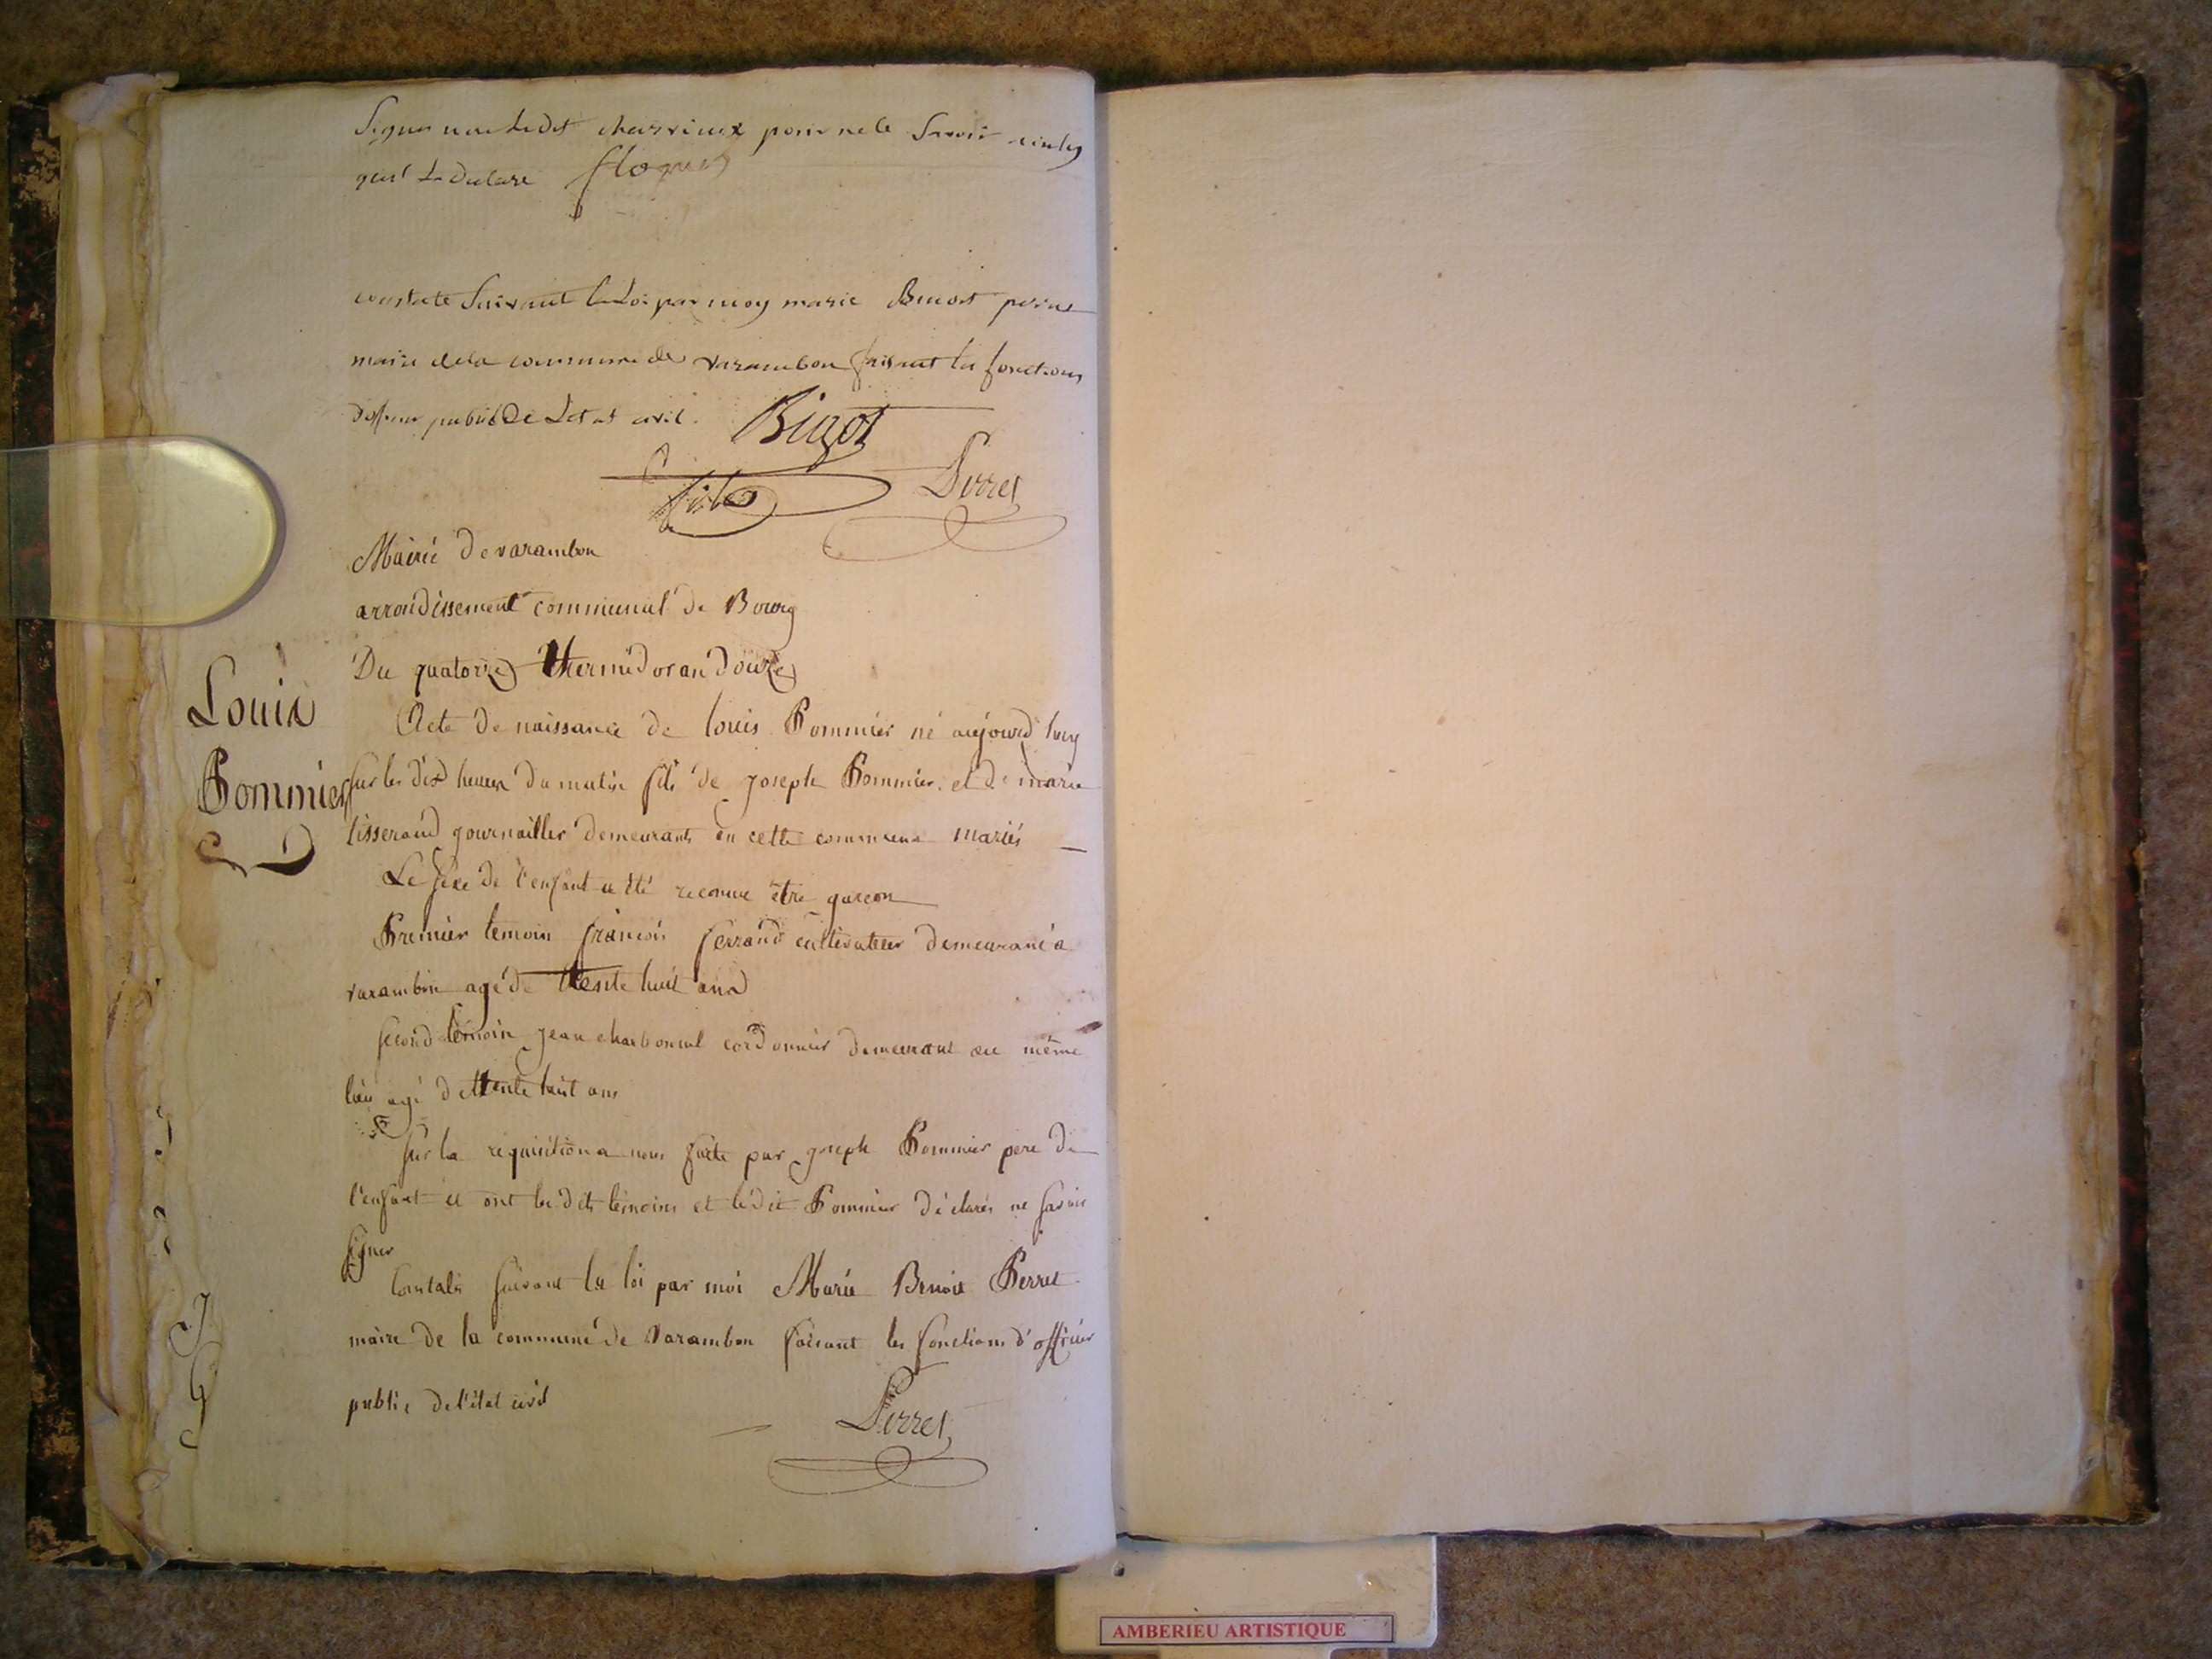 signer non ledit charvieux pour ne le savoir
qu'il a déclaré
constate Suivant la Loi par moy marie Benoit perret
maire dela commune de varambon faisant les fonctions
publicDe Letat civil. Bigot
fils Perret
Mairie devarambon
arrondissement communal de Bourg
Du quatorze thermidor an douze
Louis
Pommier
Acte de naissance de louis Pommier né aujourd'huy
sur les dix heures du matin fils de Joseph Pommier et de marie
tisserand journailler demeurants en cette commune mariés
Le sexe de l'enfant a été reconnu être garcon
Premier temoin françois ferrand cultivateur demeurant a
varambon agé de trente huit ans
second temoin jean charbonnel cordonnier demeurant au même
lieu agé de trente huit ans
sur la requisition a nous faite par joseph Pommier pere de
l'enfant et ont les dits temoins et ledit Pommier déclarés ne savoir
signer
Constaté suivant la loi par moi Marie Benoit Perret
maire de la commune de Varambon faisant les fonctions d'officier
public de l'état civil
Perret
AMBERIEU ARTISTIQUE